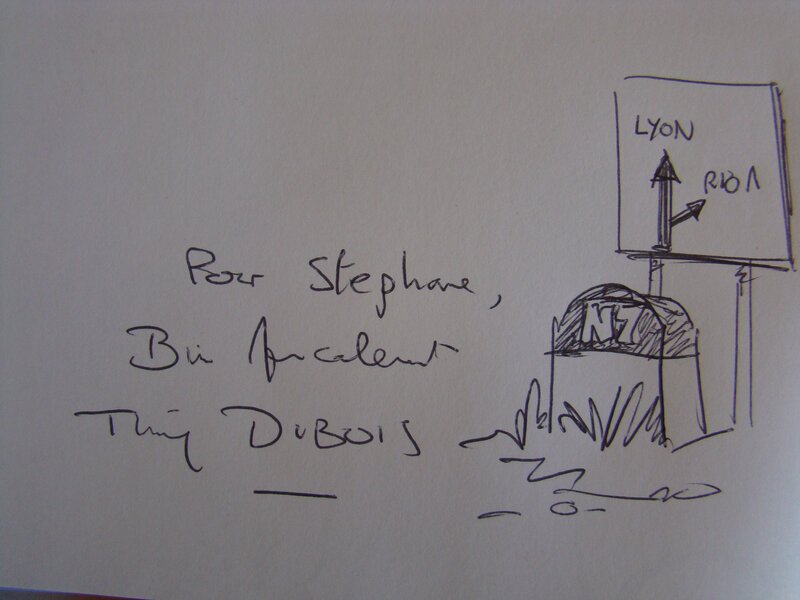 LYON
N7
Pour Stephane,
Bien Amicalement
Thierry DUBOIS